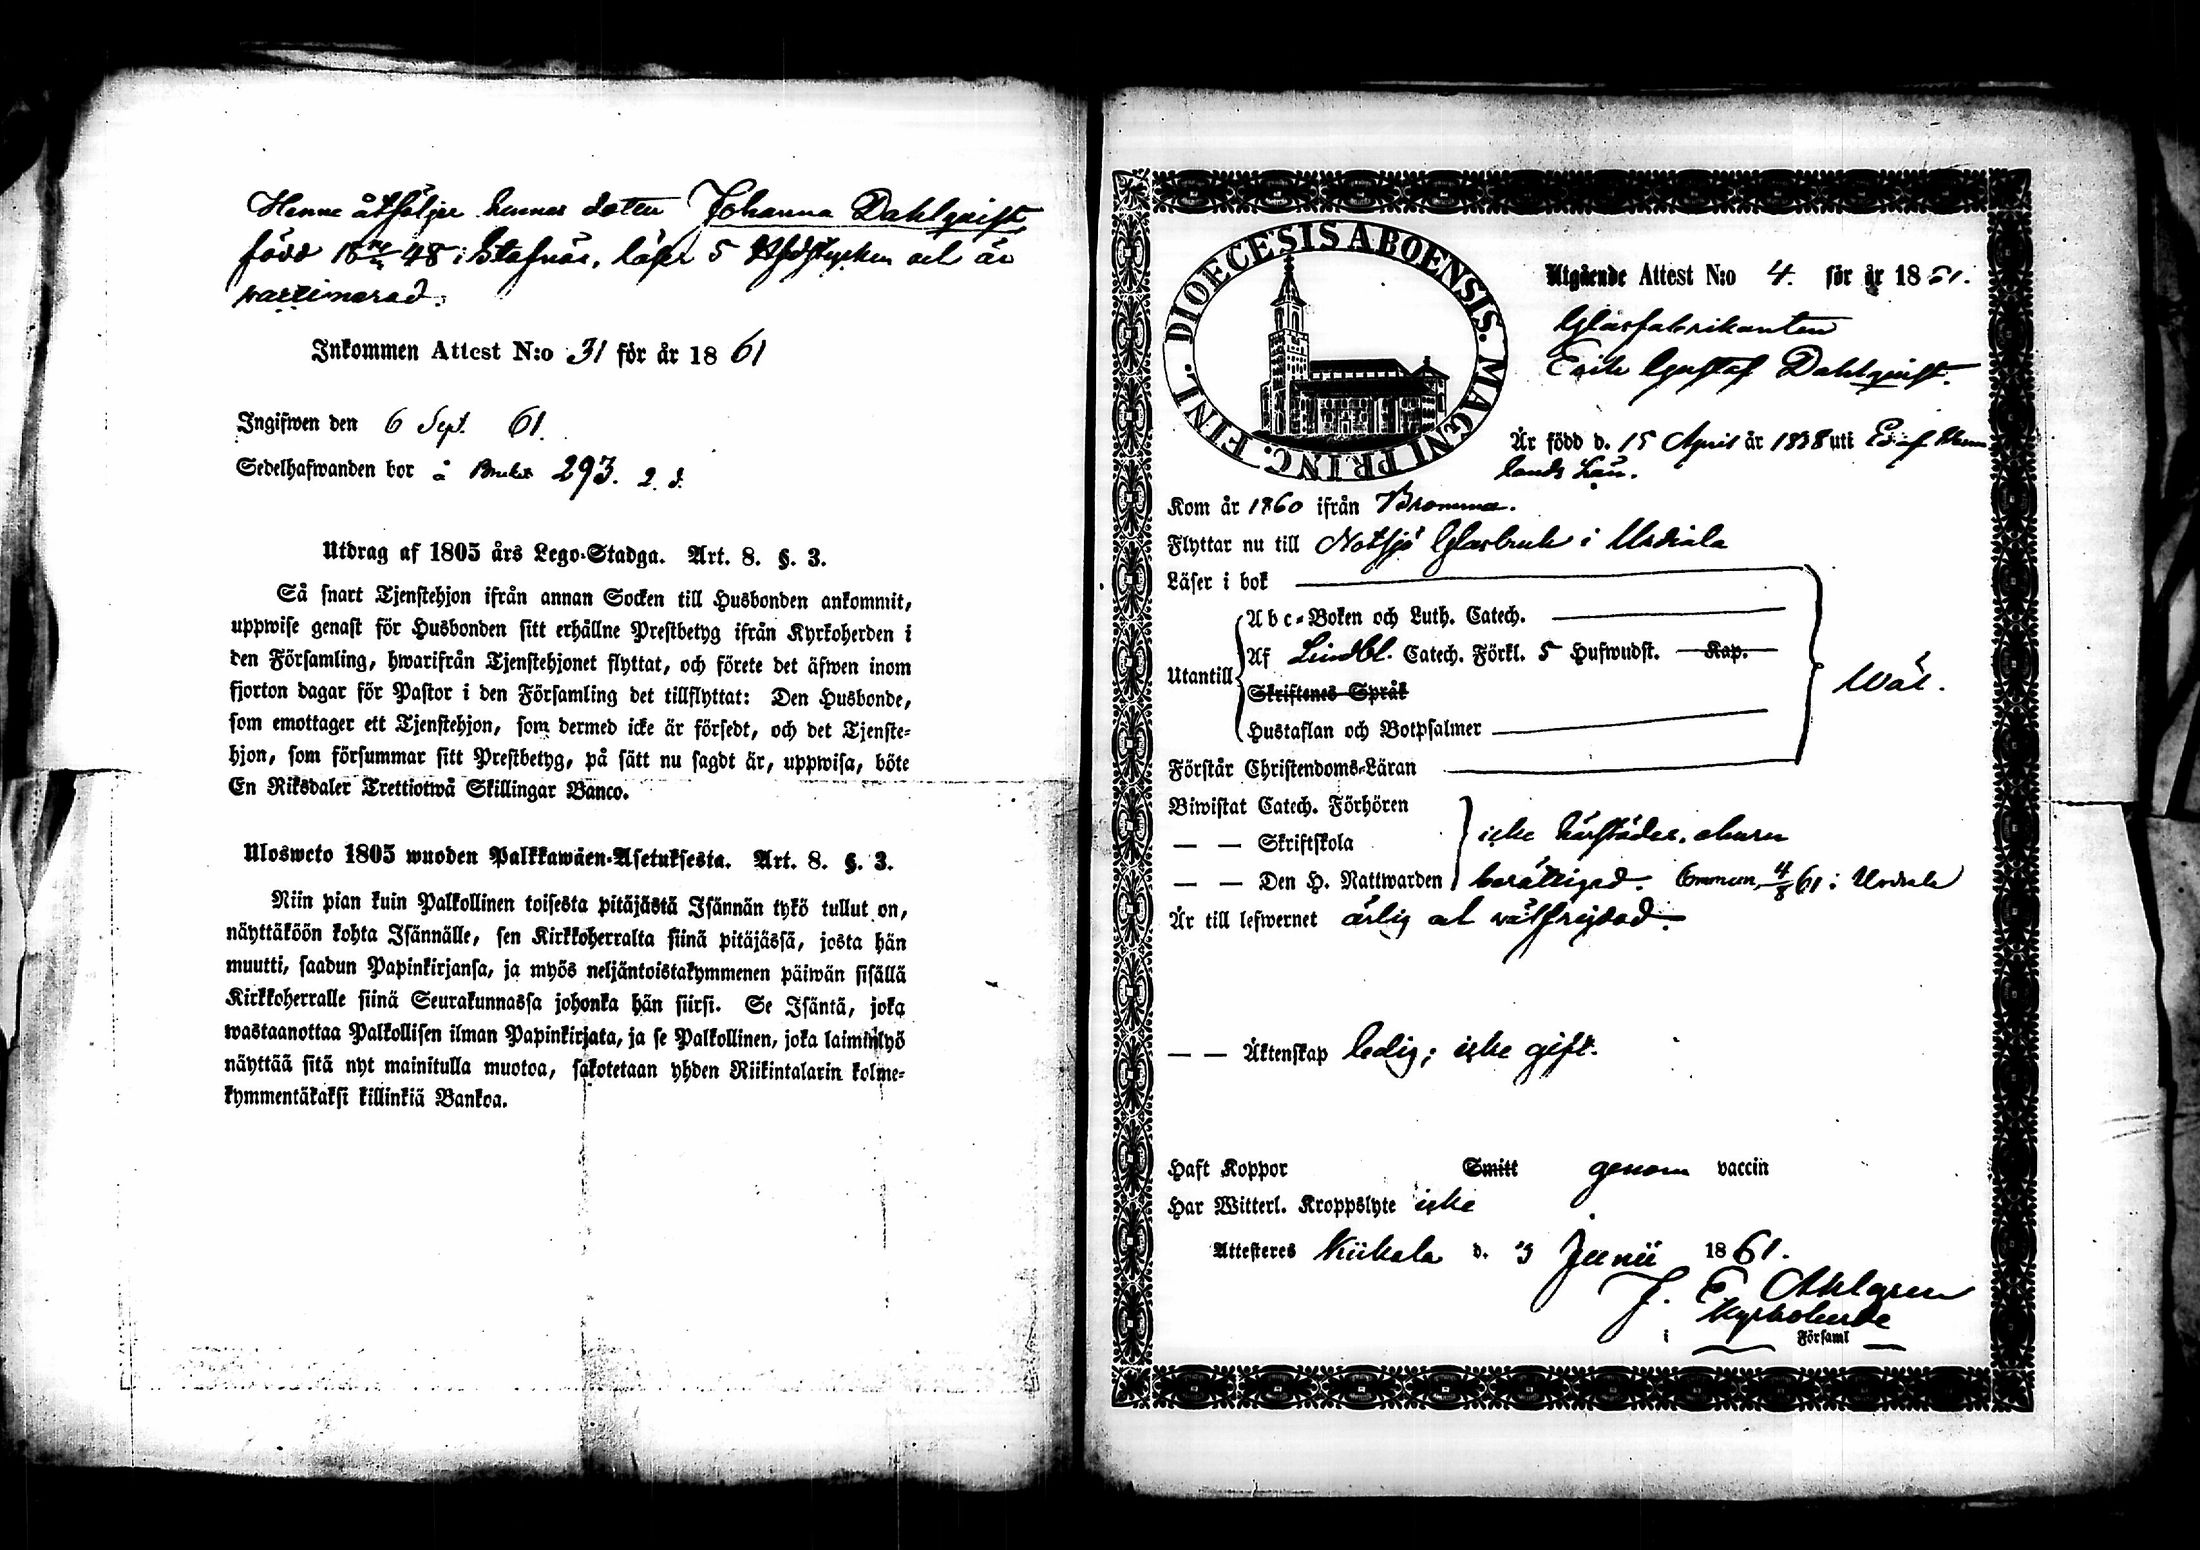 Henne åtföljer hennes doter Johanna Dahlqvist
född 18 48 i Stafnäs, läser 5 Hfdstycken och är
vaccinerad.
Inkommen Attest N:o 31 för år 18 61
Ingifwen den 6 Sept. 61.
Sedelhafwanden bor å Bruket 293. 2. d.
Utdrag af 1805 års Lego-Stadga. Art. 8. §. 3.
Så snart Tjenstehjon ifrån annan Socken till Husbonden ankommit,
uppwise genast för Husbonden sitt erhållne Prestbetyg ifrån Kyrkoherden i
den Församling, hwarifrån Tjenstehjonet flyttat, och förete det äfwen inom
fjorton dagar för Pastor i den Församling det tillflyttat: Den Husbonde,
som emottager ett Tjenstehjon, som dermed icke är försedt, och det Tjenste-
hjon, som försummar sitt Prestbetyg, på sätt nu sagdt är, uppwisa, böte
En Riksdaler Trettiotwå Skillingar Banco.
Ulosweto 1805 wuoden Palkkawäen-Asetuksesta. Art. 8. §. 3.
Niin pian kuin Palkollinen toisesta pitäjästä Isännän tykö tullut on,
näyttäköön kohta Isännälle, sen Kirkkoherralta siinä pitäjässä, josta hän
muutti, saadun Papinkirjansa, ja myös neljäntoistakymmenen päiwän sisällä
Kirkkoherralle siinä Seurakunnassa johonka hän siirsi. Se Isäntä, joka
wastaanottaa Palkollisen ilman Papinkirjata, ja se Palkollinen, joka laiminlyö
näyttää sitä nyt mainitulla muotoa, sakotetaan yhden Riikintalarin kolme-
kymmentäkaksi killinkiä Bankoa.
DIOECESIS ABOENSIS. MAGNI PRINC. FINL.
Utgående Attest N:o 4. för år 18 61.
Glasfabrikanten
Erik Gustaf Dahlqvist.
Är född d. 15 April år 1838 uti Ed af Werm
lands Län.
Kom år 1860 ifrån Bromma.
Flyttar nu till Notsjö Glasbruk i Urdiala
Läser i bok
Abc-Boken och Luth. Catech.
Utantill Af Lindbl. Catech. Förkl. 5 Hufwudst. Kap.
Skriftenes Språk
Hustaflan och Botpsalmer
Wäl.
Förstår Christendoms-Läran
Biwistat Catech. Förhören
— — Skriftskola icke härstädes, ehuru
— — Den H. Nattwarden berättigad. Commun. 4/8 61 i Urdiala
Är till lefwernet ärlig och välfrejdad.
— — Äktenskap ledig; icke gift.
Haft Koppor Smitt genom vaccin
Har Witterl. Kroppslyte icke
Attesteres Kiikala d. 3 Junii 1861.
J. E. Ahlgren
Kyrkoherde
i Församl